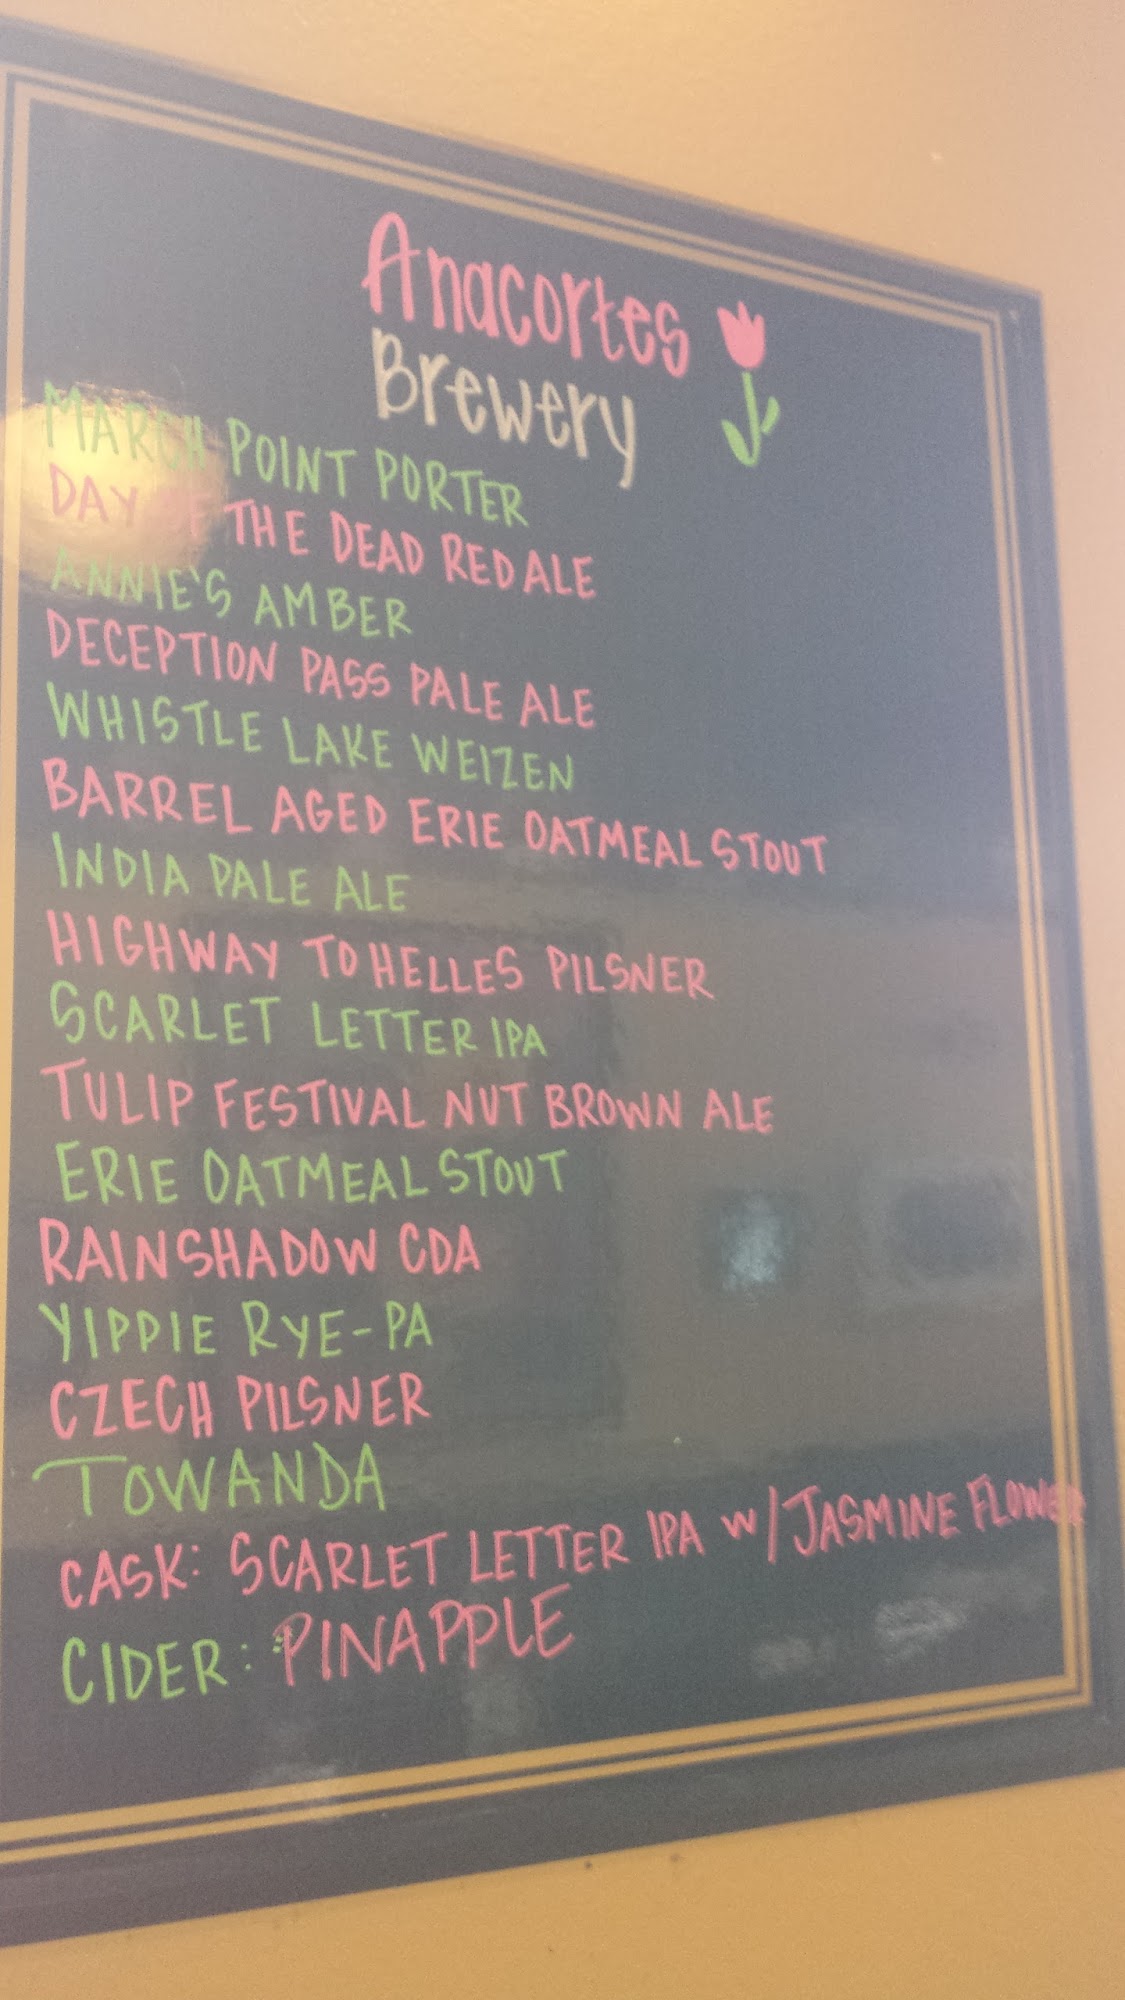 Anacortes
Brewery
MARCH POINT PORTER
DAY OF THE DEAD RED ALE
ANNIE'S AMBER
DECEPTION PASS PALE ALE
WHISTLE LAKE WEIZEN
BARREL AGED ERIE OATMEAL STOUT
INDIA PALE ALE
HIGHWAY TO HELLES PILSNER
SCARLET LETTER IPA
TULIP FESTIVAL NUT BROWN ALE
ERIE OATMEAL STOUT
RAINSHADOW CDA
YIPPIE RYE-PA
CZECH PILSNER
TOWANDA
CASK: SCARLET LETTER IPA w/ JASMINE FLOWER
CIDER: PINAPPLE